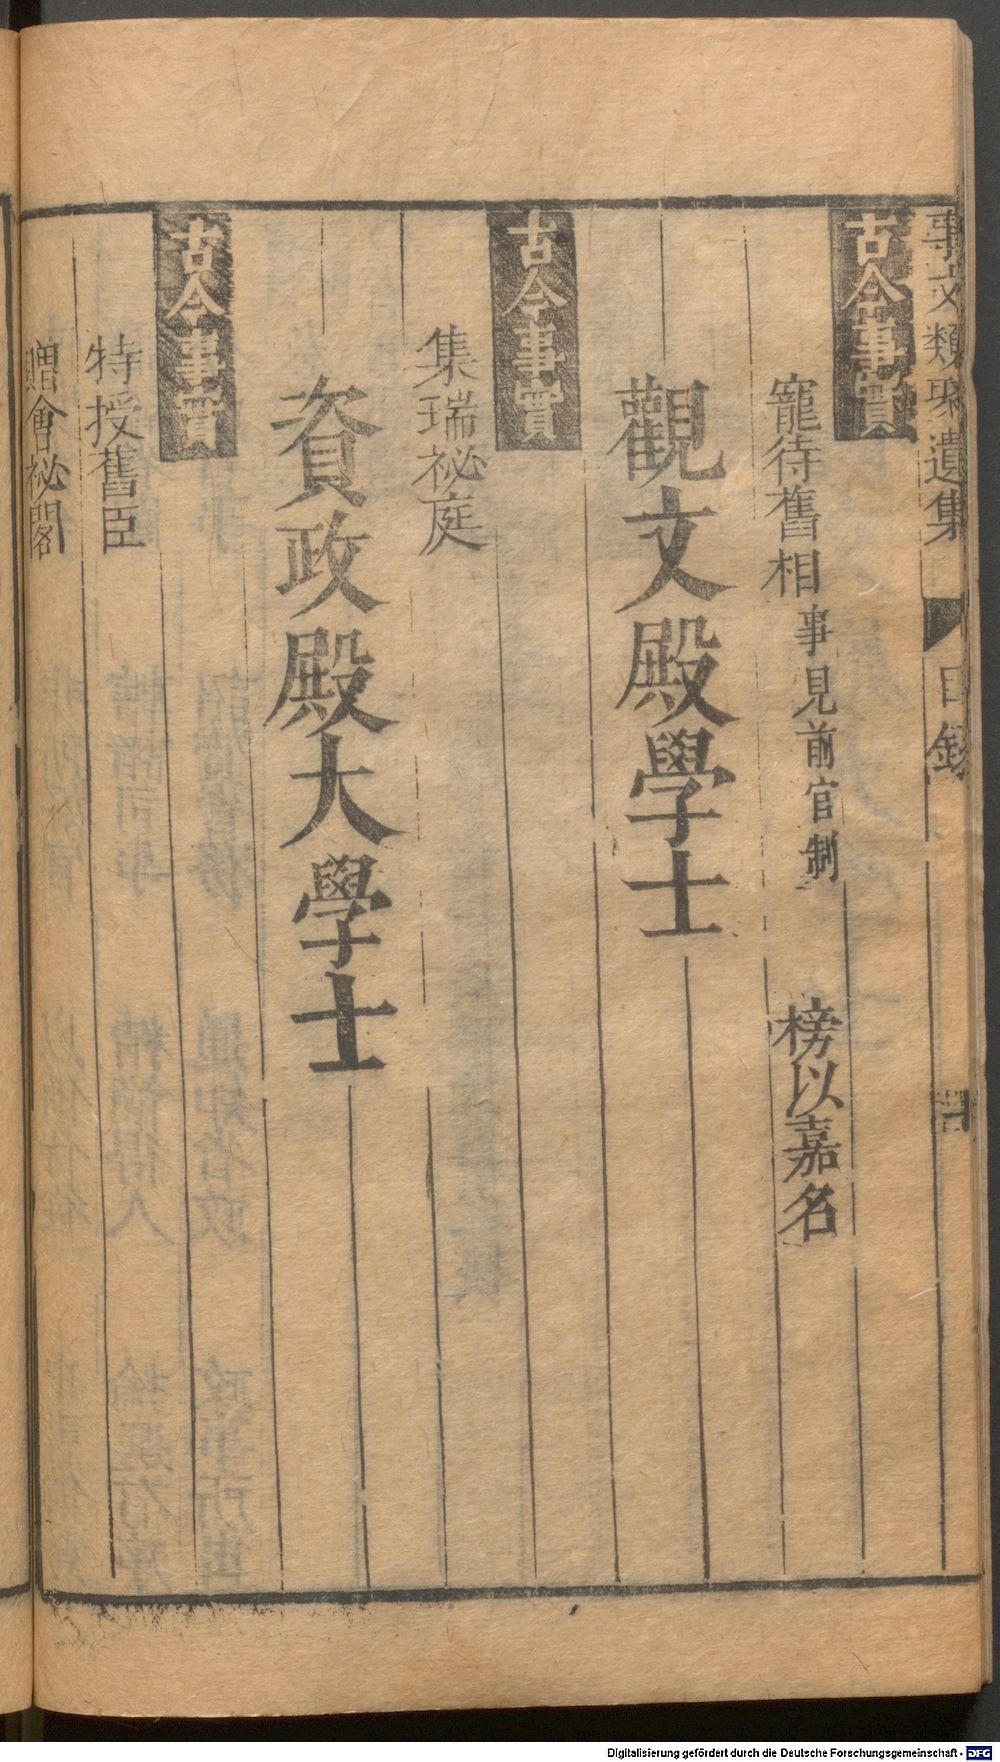 事文類聚遺集 目録
古今事實
寵待舊相 事見前官制 榜以嘉名
觀文殿學士
古今事實
集瑞祕庭
資政殿大學士
古今事實
特授舊臣
贈會祕閣
Digitalisierung gefördert durch die Deutsche Forschungsgemeinschaft - DFG